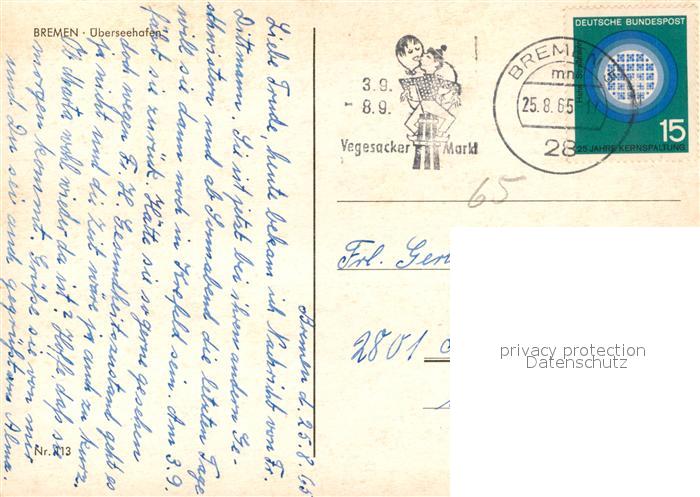 BREMEN · Überseehafen
Bremen d. 25.8.65
Liebe Trude, heute bekam ich Nachricht von Fr.
Dittmann. Sie ist jetzt bei ihren andern Ge-
schwistern und ab Sonnabend die letzten Tage
will sie dann noch in Krefeld sein. Am 3.9.
fährt sie zurück. Hätte sie so gerne gesehen
doch wegen Fr. H. Gesundheitszustand geht es
ja nicht und die Zeit wäre ja auch zu kurz.
Ob Marta wohl wieder da ist? Hoffe daß sie
morgen kommt. Grüße sie von mir
und Du sei auch gegrüßt von Alma.
Nr. 113
3.9.
8.9.
Vegesacker Markt
BREMEN
25.8.65
28
DEUTSCHE BUNDESPOST
15
25 JAHRE KERNSPALTUNG
65
Frl. Ger
2801
privacy protection
Datenschutz